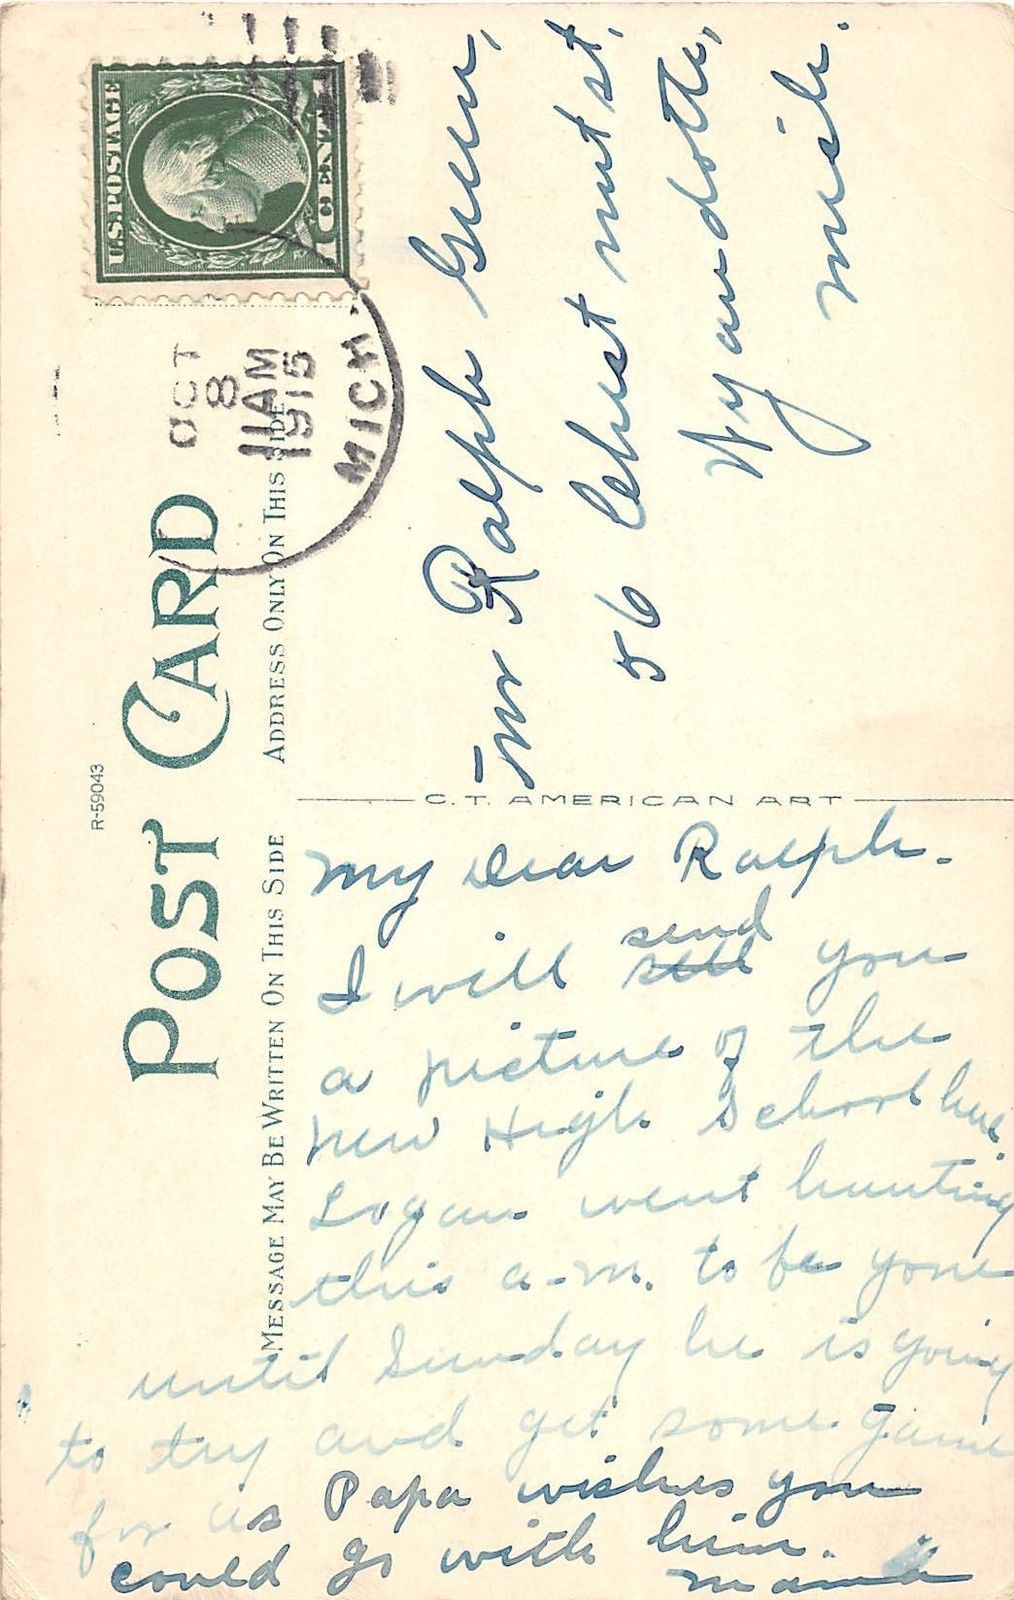 U.S. POSTAGE
1 CENT 1
OCT
8
11 AM
1915
MICH.
R-59043
POST CARD
MESSAGE MAY BE WRITTEN ON THIS SIDE
ADDRESS ONLY ON THIS SIDE
C.T. AMERICAN ART
Mr Ralph Green,
56 Chest nut st,
Wyandotte,
Mich.
My Dear Ralph.
I will send you
a picture of the
new High School here.
Logan went hunting
this a-m. to be gone
until Sunday he is going
to try and get some game
for us Papa wishes you
could go with him.
Mama